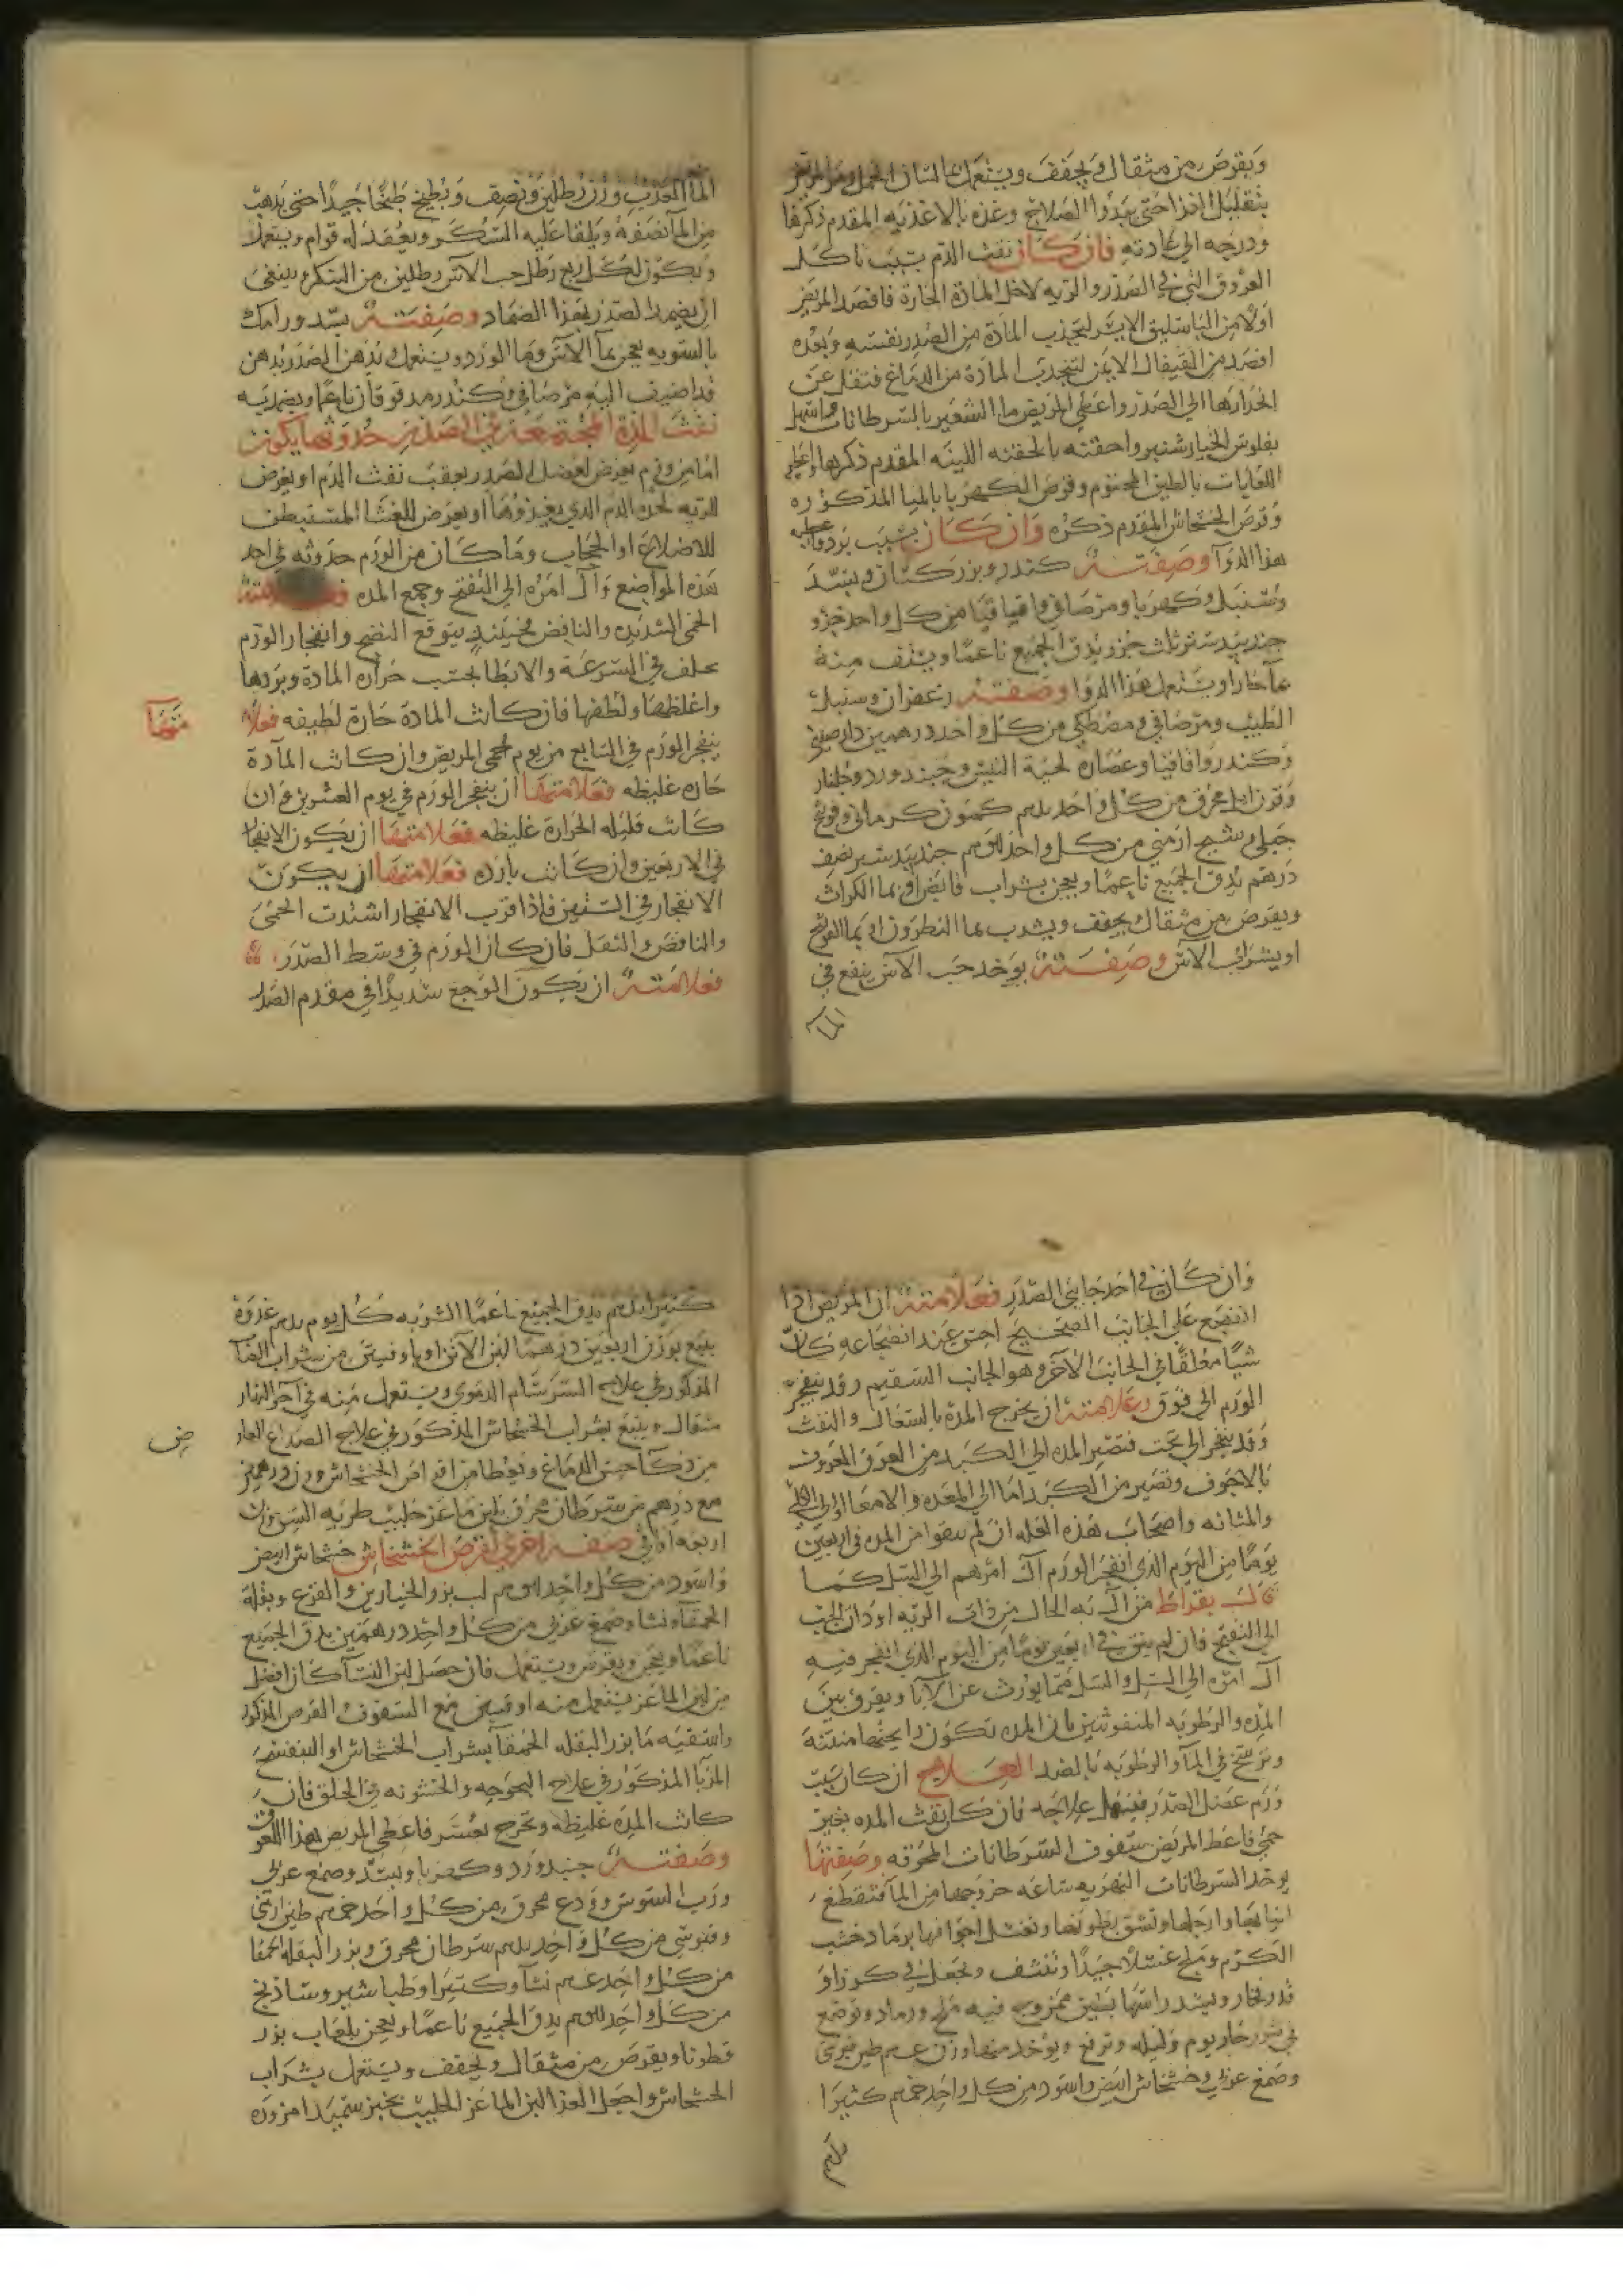 ويقرص من مثقال ويجفف ويستعمل بماء لسان الحمل ومر المريض
بتقليل الغذا حتى يبدوا الصلاح وغذه بالاغذيه المقدم ذكرها
ودرجه الى عادته فان كان نفث الدم بسبب تاكل
العروق التي في الصدر والريه لاجل المادة الحارة فافصد المريض
اولا من الباسليق الايسر لتجذب المادة من الصدر نفسه وبعده
افصد من القيفال الايمن لتنجذب المادة من الدماغ فتقل عن
انحدارها الى الصدر واعطي المريض ماء الشعير بالسرطانات واسهل
بفلوس الخيار شنبر واحقنه بالحقنه اللينه المقدم ذكرها واعطه
اللعابات بالطين المختوم وقرص الكهربا بالمياه المذكوره
وقرص الخشخاش المقدم ذكره وان كان بسبب برد فاعطه
هذا الدوا وصفته كندر وبزر كتان وبسد
وسنبل وكهربا ومر صافي واقياقيا من كل واحد جزو
جندبيدستر ثلث جزو يدق الجميع ناعما ويسف منه
بماء حار او يستعمل هذا الدوا وصفته زعفران وسنبل
الطيب ومر صافي ومصطكي من كل واحد درهمين دارصيني
وكندر واقاقيا وعصاره لحية التيس وجنبد ورد وجلنار
وقرن ايل محرق من كل واحد كمون كرماني وفوتنج
جبلي وشيح ارمني من كل واحد جندبيدستر نصف
درهم يدق الجميع ناعما ويعجن بشراب قابض او بماء الكراث
ويقرص من مثقال ويجفف ويشرب بماء النطرون او بماء الفوتنج
او بشراب الآس وصفته يوخد حب الآس ينقع في
الماء
الماء العذب وزن رطلين ونصف ويطبخ طبخا جيدا حتى يذهب
من الماء نصفه ويلقا عليه السكر ويعقد له قوام ويستعمل
ويكون لكل ربع رطل حب الآس رطلين من السكر وينبغي
ان يضمد الصدر بهذا الضماد وصفته بسد ورامك
بالسويه يعجن بماء الآس وماء الورد ويستعمل ويدهن الصدر بدهن
قد اضيف اليه مر صافي وكندر مدقوقان ناعما ويضمد به
نفث المدة المجتمعة في الصدر حدوثها يكون
اما من ورم يعرض لعضل الصدر يعقب نفث الدم او يعرض
للريه لحدة الدم الذي يغدوها او يعرض للغشا المستبطن
للاضلاع او الحجاب وما كان من الورم حدوثه في احد
هذه المواضع وآل امره الى التفتح وجمع المده
الحمى الشديده والنافض فحينئذ يتوقع النضج وانفجار الورم
يختلف في السرعة والابطا بحسب حرارة المادة وبردها
واغلظها ولطفها فان كانت المادة حارة لطيفه فعلا
متها
ينفجر الورم في السابع من يوم حمى المريض وان كانت المادة
حاره غليظه فعلامتها ان ينفجر الورم في يوم العشرين وان
كانت قليله الحرارة غليظه فعلامتها ان يكون الانفجار
في الاربعين وان كانت بارده فعلامتها ان يكون
الانفجار في الستين فاذا قرب الانفجار اشتدت الحمى
والنافض والثقل فان كان الورم في وسط الصدر
فعلامته ان يكون الوجع شديدا في مقدم الصدر
وان كان في احد جانبي الصدر فعلامته ان المريض اذا
اضجع على الجانب الصحيح احس عند انضجاعه كان
شيا معلقا في الجانب الآخر وهو الجانب السقيم وقد ينفجر
الورم الى فوق وعلامته ان يخرج المدة بالسعال والنفث
وقد ينفجر الى تحت فتصير المده الى الكبد من العرق المعروف
بالاجوف وتصير من الكبد اما الى المعده والامعا او الى الكلى
والمثانه واصحاب هذه العله ان لم ينقوا من المده في اربعين
يوما من اليوم الذي انفجر الورم آل امرهم الى السل كما
قال بقراط من آل به الحال من ذات الريه او ذات الجنب
الى التفتح فان لم ينق في اربعين يوما من اليوم الذي انفجر فيه
آل امره الى السل والسل مما يورث عن الآبا ويفرق بين
المده والرطوبه المنفوثتين بان المده تكون رايحتها منتنة
وترسخ في الماء والرطوبه بالضد العلاج ان كان سبب
ورم عضل الصدر علاجه فان كان نفث المده بغير
حمى فاعط المريض سفوف السرطانات المحرقه وصفتها
يوخد السرطانات النهريه ساعه خروجها من الماء فتقطع
انيابها وارجلها وتشق بطونها وتغسل اجوافها برماد خشب
الكرم وملح غسلا جيدا وتنشف وتجعل في كوز او
قدر فخار ويشد راسها بطين ممزوج فيه ملح ورماد وتوضع
في تنور حار يوم وليله وترفع ويؤخد منها وزن طين قبرسي
وصمغ عربي وخشخاش ابيض واسود من كل واحد كثيرا
كثيرا يدق الجميع ناعما الشربه كل يوم غدوة
يتبع بوزن اربعين درهما لبن الاتن او باوقيتين من شراب العناب
المذكور في علاج السرسام الدموي ويستعمل منه في آخر النهار
مثقال ويتبع بشراب الخشخاش المذكور في علاج الصداع الحار
ض
من ذكاء حس الدماغ ويعطا من اقراص الخشخاش وزن درهمين
مع درهم من سرطان محرق بلبن ماعز حليب طريه السن وزن
اربعه اواق صفه اخرى لقرص الخشخاش خشخاش ابيض
واسود من كل واحد لب بزر الخيارين والقرع وبقلة
الحمقاء ونشا وصمغ عربي من كل واحد درهمين يدق الجميع
ناعما ويعجن ويقرص ويستعمل فان حصل لبن النساء كان افضل
من لبن الماعز يستعمل منه اوقيتين مع السفوف القرص المذكور
واسقيه ماء بزر البقله الحمقاء بشراب الخشخاش او البنفسج
المربا المذكور في علاج البحوحه والخشونه في الحلق فان
كانت المده غليظه وتخرج بعسر فاعطي المريض هذا اللعوق
وصفته جنبد ورد وكهربا وبسد وصمغ عربي
ورب السوس وودع محرق من كل واحد طين ارمني
وقبرسي من كل واحد سرطان محرق وبزر البقله الحمقا
من كل واحد نشا وكثيرا وطباشير وشاذنج
من كل واحد يدق الجميع ناعما ويعجن بلعاب بزر
قطونا ويقرص من مثقال ويجفف ويستعمل بشراب
الخشخاش واجعل الغذا لبن الماعز الحليب بخبز سميد او مزوره